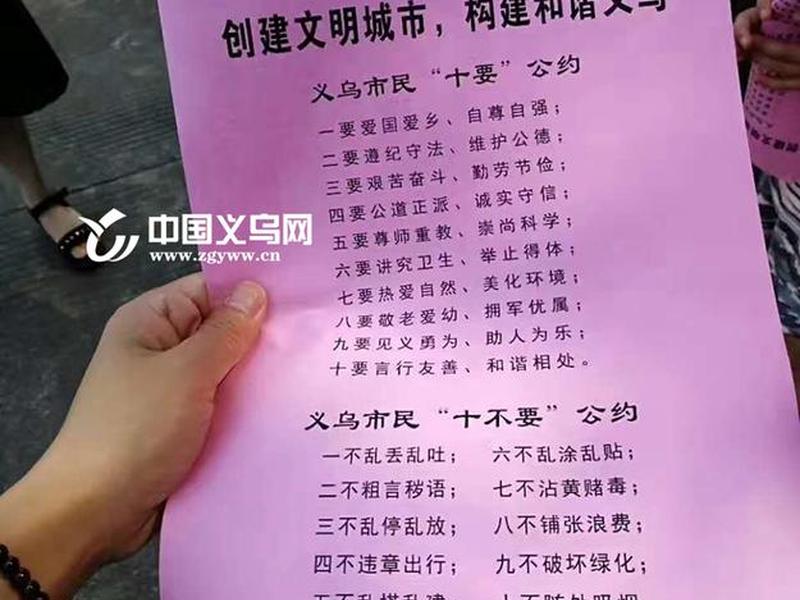 创建文明城市，构建和谐义乌
义乌市民“十要”公约
一要爱国爱乡、自尊自强；
二要遵纪守法、维护公德；
三要艰苦奋斗、勤劳节俭；
四要公道正派、诚实守信；
五要尊师重教、崇尚科学；
六要讲究卫生、举止得体；
七要热爱自然、美化环境；
八要敬老爱幼、拥军优属；
九要见义勇为、助人为乐；
十要言行友善、和谐相处。
中国义乌网
www.zgyww.cn
义乌市民“十不要”公约
一不乱丢乱吐； 六不乱涂乱贴；
二不粗言秽语； 七不沾黄赌毒；
三不乱停乱放； 八不铺张浪费；
四不违章出行； 九不破坏绿化；
五不乱搭乱建 十不随处吸烟
创建文明